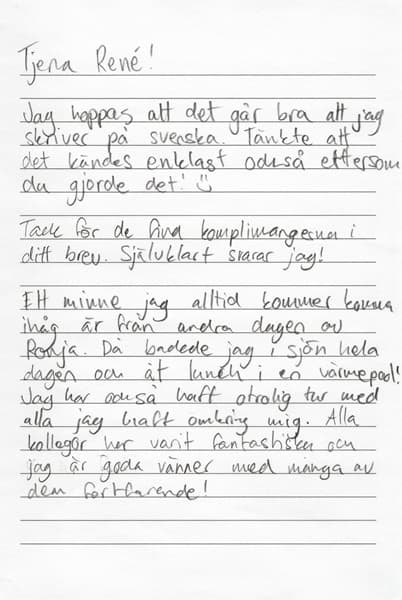 Tjena René!
Jag hoppas att det går bra att jag
skriver på svenska. Tänkte att
det kändes enklast också eftersom
du gjorde det! ☺
Tack för de fina komplimangerna i
ditt brev. Självklart svarar jag!
Ett minne jag alltid kommer komma
ihåg är från andra dagen av
Ronja. Då badede jag i sjön hela
dagen och åt lunch i en värmepool!
Jag har också haft otrolig tur med
alla jag haft omkring mig. Alla
kollegor har varit fantastiska och
jag är goda vänner med många av
dem fortfarende!